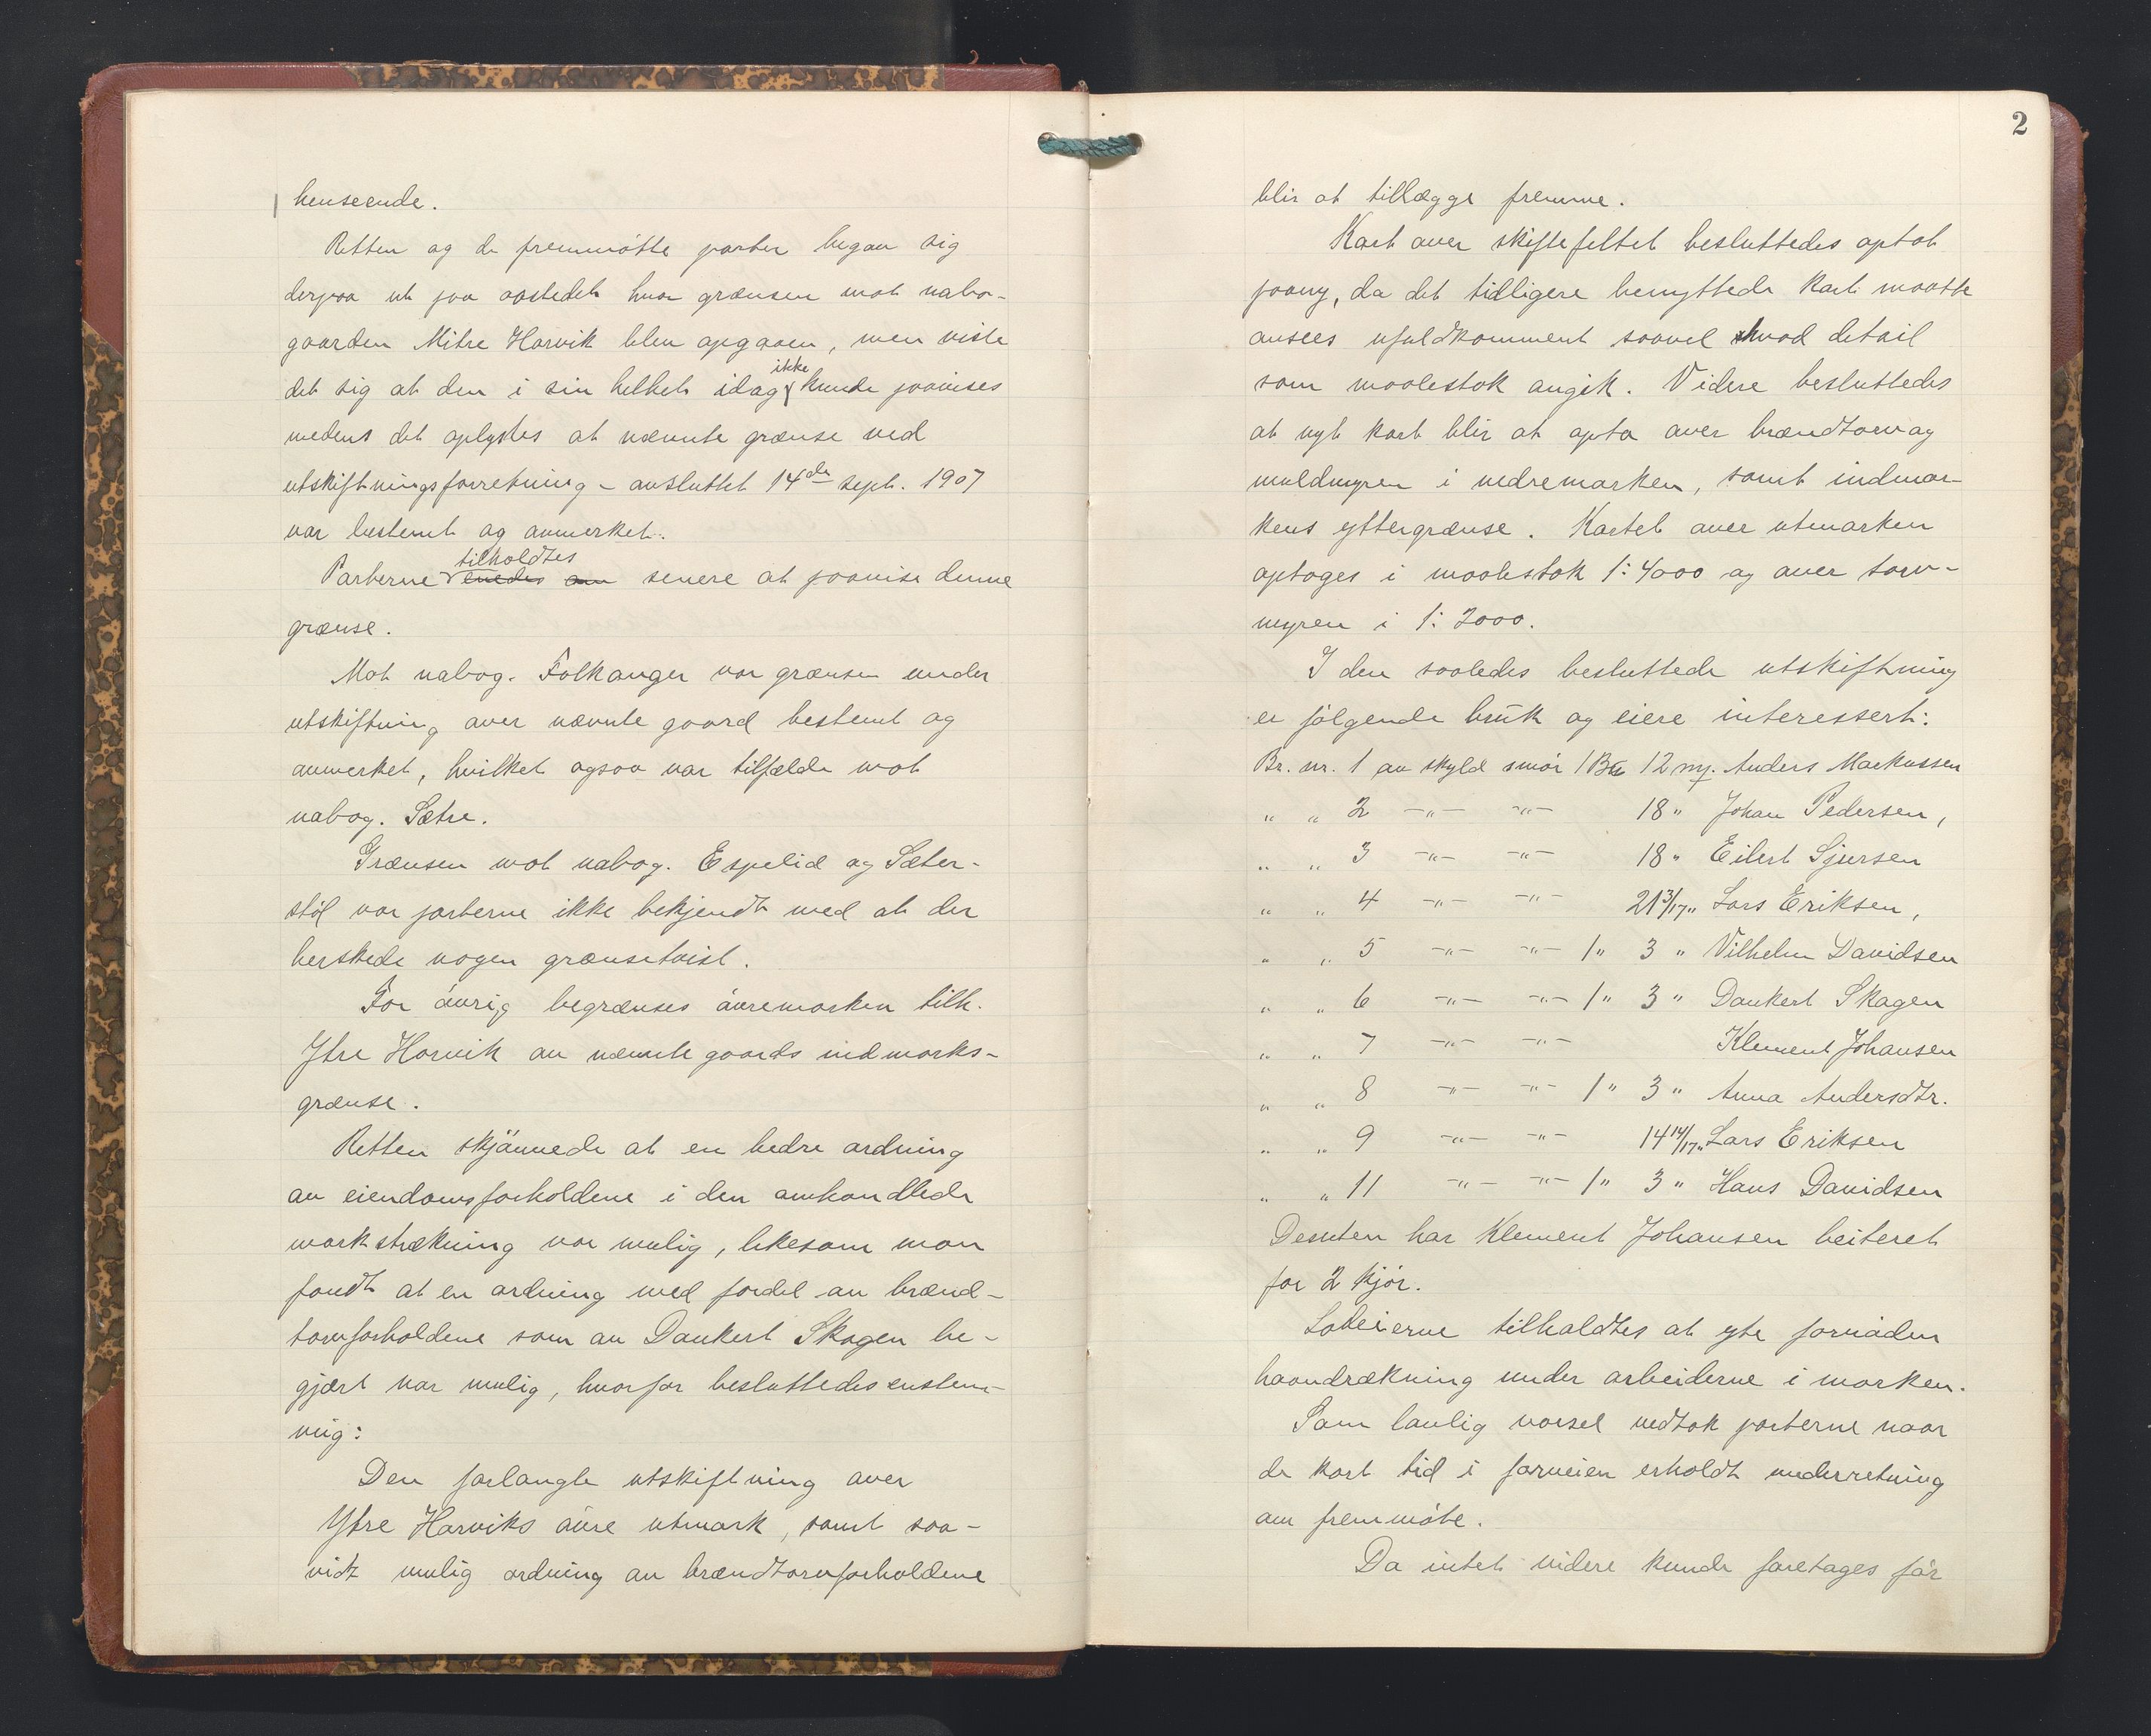 henseende.
Retten og de fremmøtte parter begav sig
derpaa ut paa aastedet hvor grænsen mot nabo-
gaarden Mitre Horvik blev opgaaen, men viste
det sig at den i sin helhet idag ikke kunde paavises
medens det oplystes at nævnte grænse ved
utskiftningsforretning - avsluttet 14de sept. 1907
var bestemt og avmerket.
Parterne tilholdtes enedes om senere at paavise denne
grænse.
Mot nabog. Folkanger var grænsen under
utskiftning over nævnte gaard bestemt og
avmerket, hvilket ogsaa var tilfælde mot
nabog. Sætre.
Grænsen mot nabog. Espelid og Sæter-
støl var parterne ikke bekjendt med at der
herskede nogen grænsetvist.
For øvrig begrænses øvremarken tilh.
Ytre Horvik av nævnte gaards indmarks-
grænse.
Retten skjønnede at en bedre ordning
av eiendomsforholdene i den omhandlede
markstrækning var mulig, likesom man
fandt at en ordning med fordel av brænd-
torvforholdene som av Dankert Skagen be-
gjært var mulig, hvorfor besluttedes enstem-
mig:
Den forlangte utskiftning over
Ytre Horviks øvre utmark, samt saa-
vidt mulig ordning av brændtorvforholdene
2
blir at tillægge fremme.
Kart over skiftefeltet besluttedes optat
paany, da det tidligere benyttede kart maatte
ansees ufuldkomment saavel hvad detail
som maalestok angik. Videre besluttedes
at nyt kart blir at opta over brændtorv og
muldmyren i nedremarken, samt indmar-
kens yttergrænse. Kartet over utmarken
optages i maalestok 1:4000 og over torv-
myren i 1:2000.
I den saaledes besluttede utskiftning
er følgende bruk og eiere interessert:
Br. nr. 1 av skyld smør 1 B 12 m. Anders Markussen
" " 2 -"- -"- 18 " Johan Pedersen,
" " 3 -"- -"- 18 " Eilert Sjursen
" " 4 -"- -"- 21 3/17 " Lars Eriksen,
" " 5 -"- -"- 1 " 3 " Vilhelm Davidsen
" " 6 -"- -"- 1 " 3 " Dankert Skagen
" " 7 -"- -"- Klement Johansen
" " 8 -"- -"- 1 " 3 " Anna Andersdtr.
" " 9 -"- -"- 14 14/17 " Lars Eriksen
" " 11 -"- -"- 1 " 3 " Hans Davidsen
Desuten har Klement Johansen beiteret
for 2 kjør.
Lodeierne tilholdtes at yte fornøden
haandrækning under arbeiderne i marken.
Som lovlig varsel vedtok parterne naar
de kort tid i forveien erholdt underretning
om fremmøte.
Da intet videre kunde foretages før